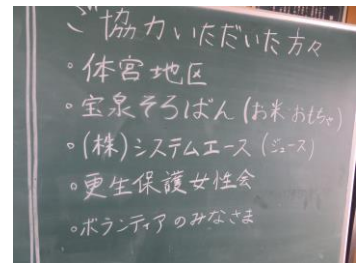 ご協力いただいた方々
◦体宮地区
◦宝泉そろばん(お米・おもちゃ)
◦(株)システムエース(ジュース)
◦更生保護女性会
◦ボランティアのみなさま